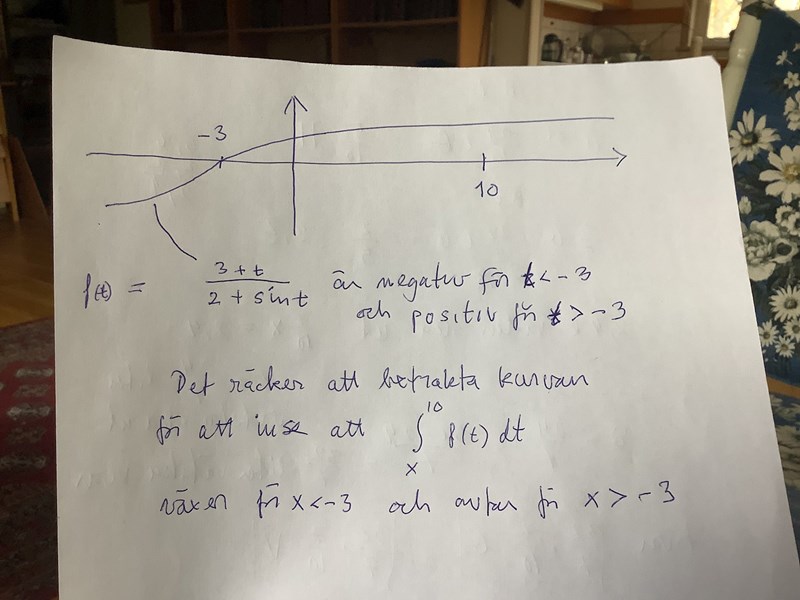 -3
10
f(t) = 3+t / 2+sint är negativ för t < -3
och positiv för t > -3
Det räcker att betrakta kurvan
för att inse att ∫_x^10 f(t) dt
växer för x < -3 och avtar för x > -3